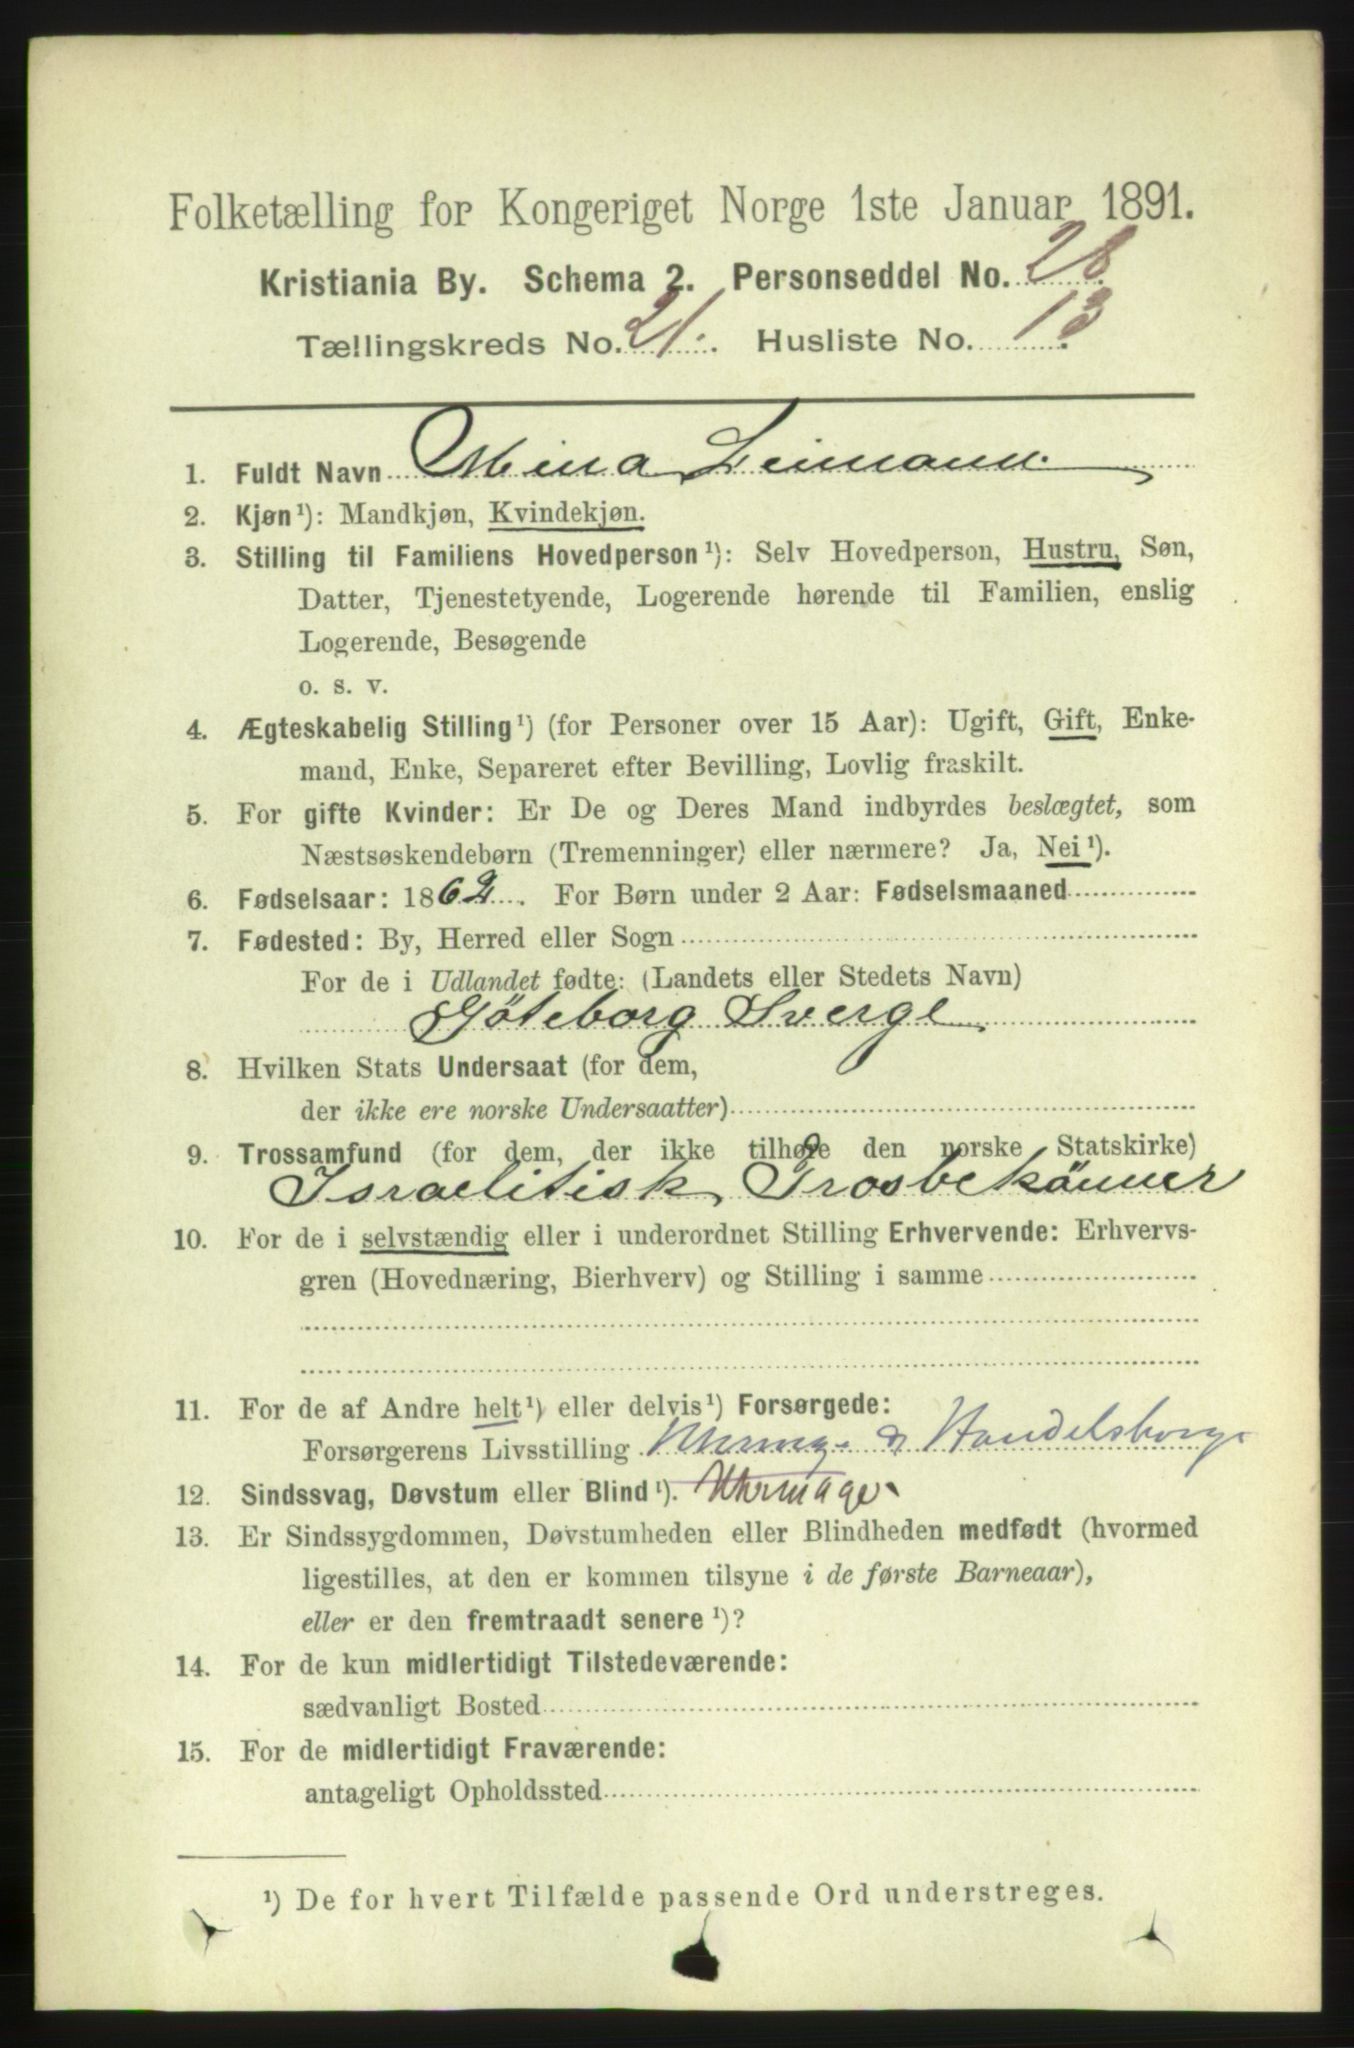 Folketælling for Kongeriget Norge 1ste Januar 1891.
Kristiania By. Schema 2. Personseddel No. 28.
Tællingskreds No. 21. Husliste No. 13.
1. Fuldt Navn Mina Leimann.
2. Kjøn¹): Mandkjøn, Kvindekjøn.
3. Stilling til Familiens Hovedperson¹): Selv Hovedperson, Hustru, Søn,
Datter, Tjenestetyende, Logerende hørende til Familien, enslig
Logerende, Besøgende
o. s. v.
4. Ægteskabelig Stilling¹) (for Personer over 15 Aar): Ugift, Gift, Enke-
mand, Enke, Separeret efter Bevilling, Lovlig fraskilt.
5. For gifte Kvinder: Er De og Deres Mand indbyrdes beslægtet, som
Næstsøskendebørn (Tremenninger) eller nærmere? Ja, Nei¹).
6. Fødselsaar: 1862. For Børn under 2 Aar: Fødselsmaaned
7. Fødested: By, Herred eller Sogn
For de i Udlandet fødte: (Landets eller Stedets Navn)
Göteborg Sverge
8. Hvilken Stats Undersaat (for dem,
der ikke ere norske Undersaatter)
9. Trossamfund (for dem, der ikke tilhøre den norske Statskirke)
Israelitisk Trosbekänner
10. For de i selvstændig eller i underordnet Stilling Erhvervende: Erhvervs-
gren (Hovednæring, Bierhverv) og Stilling i samme
11. For de af Andre helt¹) eller delvis¹) Forsørgede:
Forsørgerens Livsstilling Handelsborge
12. Sindssvag, Døvstum eller Blind¹). Uhrmager
13. Er Sindssygdommen, Døvstumheden eller Blindheden medfødt (hvormed
ligestilles, at den er kommen tilsyne i de første Barneaar),
eller er den fremtraadt senere¹)?
14. For de kun midlertidigt Tilstedeværende:
sædvanligt Bosted
15. For de midlertidigt Fraværende:
antageligt Opholdssted
¹) De for hvert Tilfælde passende Ord understreges.